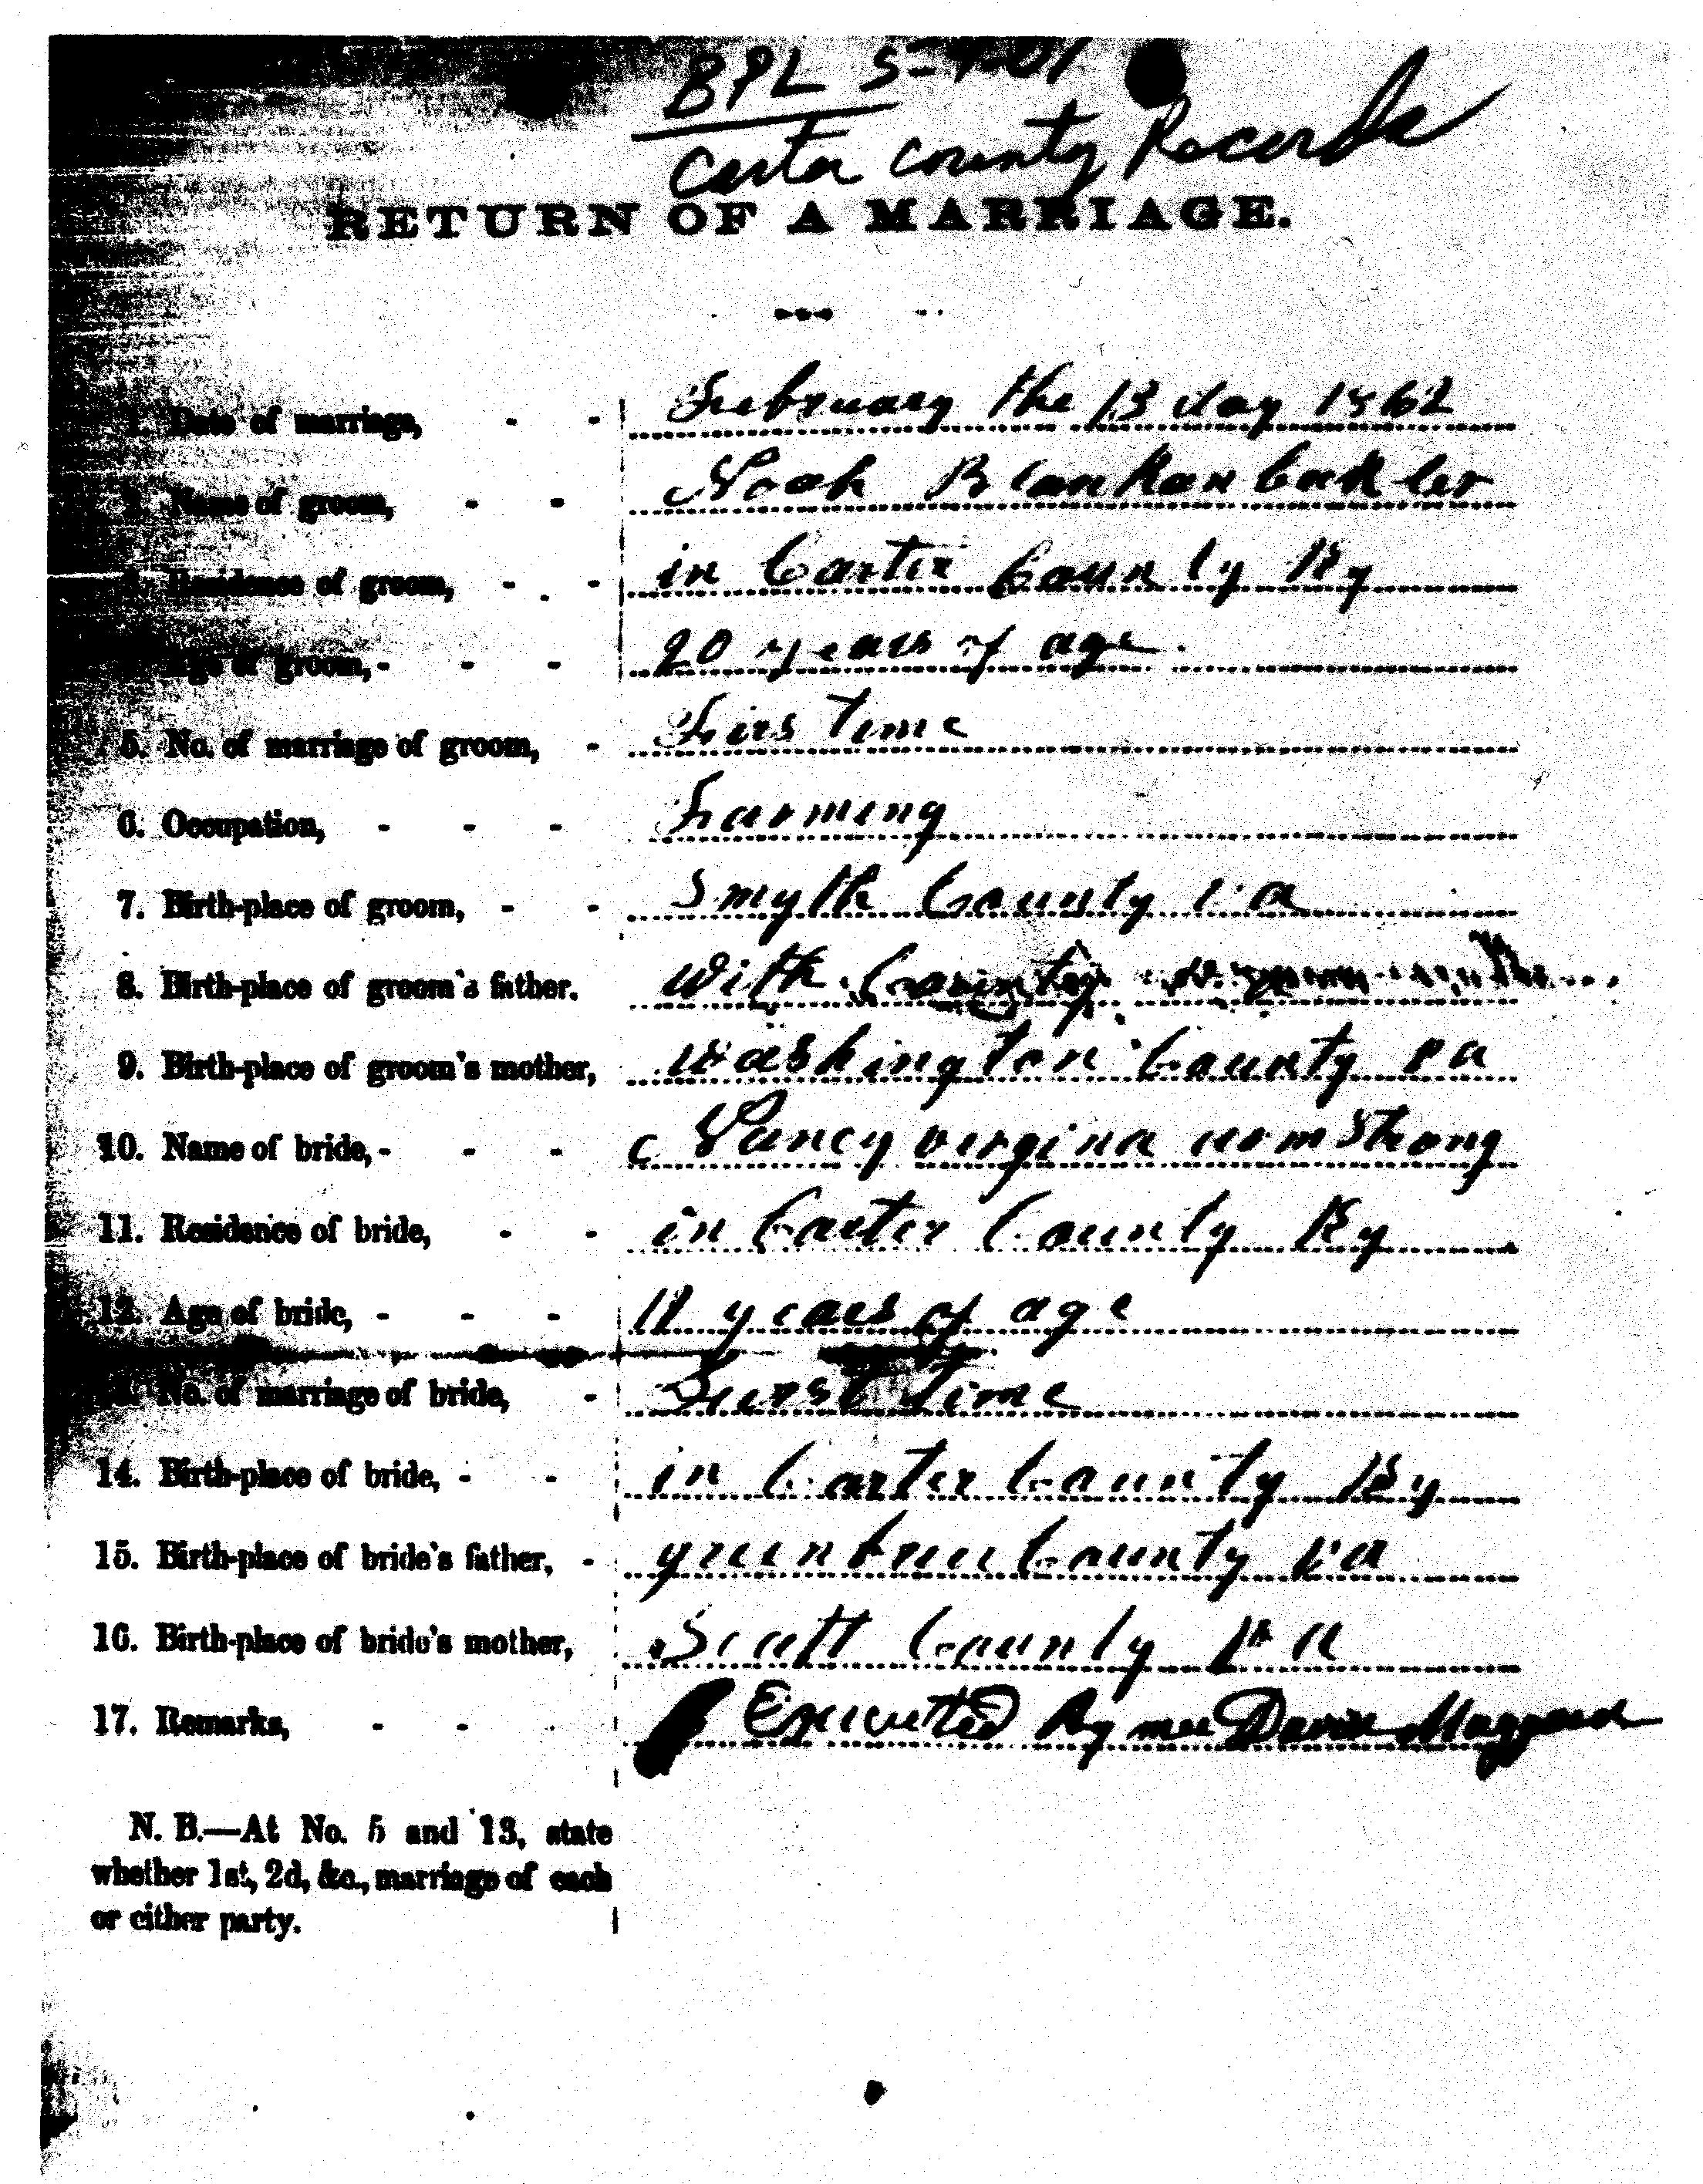 BPL 5-7-01
Carter County Records
RETURN OF A MARRIAGE.
1. Date of marriage, - - Feebruary the 13 day 1862
2. Name of groom, - - Noah Blankanbackler
3. Residence of groom, - - in Carter County Ky
4. Age of groom, - - - 20 years of age
5. No. of marriage of groom, - Firs Time
6. Occupation, - - - Farming
7. Birth-place of groom, - - Smyth County va
8. Birth-place of groom's father. With County
9. Birth-place of groom's mother, Washington County va
10. Name of bride, - - - Nancy virgina armstrong
11. Residence of bride, - - in Carter County Ky
12. Age of bride, - - - years of age
13. No. of marriage of bride, - Furst Time
14. Birth-place of bride, - - in Carter County Ky
15. Birth-place of bride's father, - greenbrier County va
16. Birth-place of bride's mother, Scott County va
17. Remarks, - - Executed By mee David Maggard
N. B.—At No. 5 and 13, state
whether 1st, 2d, &c., marriage of each
or either party.